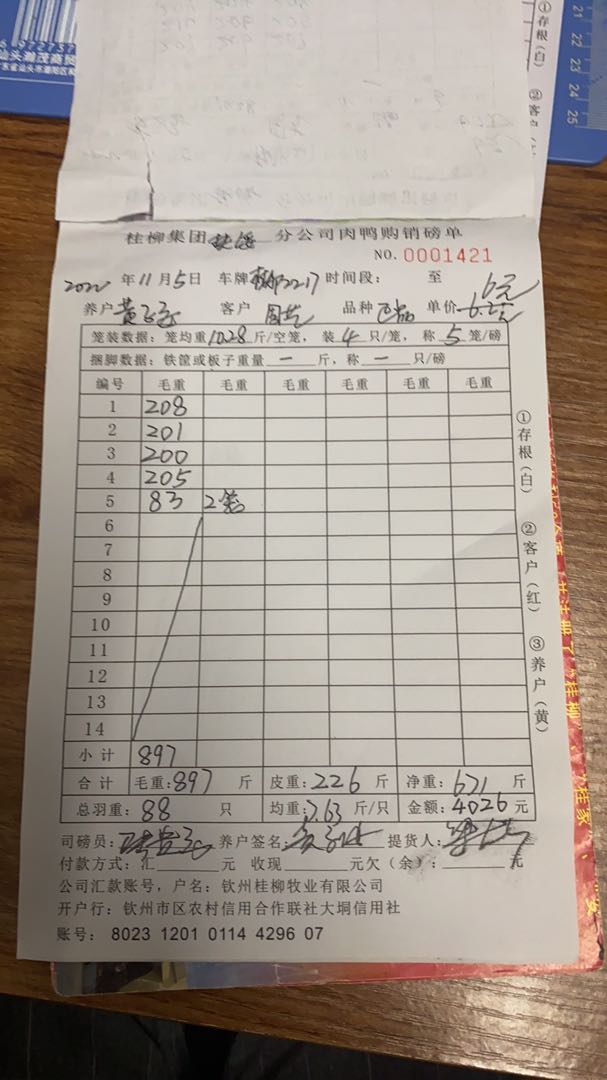 21
22
23
24
25
6 972737
汕头瀚茂商贸
东省汕头市潮阳区
①存根(白)
②客户
桂柳集团 分公司肉鸭购销磅单
NO. 0001421
2022 年 11 月 5 日 车牌 2217 时间段: 至
6元
养户 黄 客户 周 品种 单价
笼装数据: 笼均重 10.28 斤/空笼, 装 4 只/笼, 称 5 笼/磅
捆脚数据: 铁筐或板子重量 一 斤, 称 一 只/磅
编号 毛重 毛重 毛重 毛重 毛重 毛重
1 208
2 201
3 200
4 205
5 83 2笼
6
7
8
9
10
11
12
13
14
小计 897
合计 毛重: 897 斤 皮重: 226 斤 净重: 671 斤
总羽重: 88 只 均重: 7.63 斤/只 金额: 4026 元
司磅员: 养户签名 提货人:
付款方式: 汇 元 收现 元欠(余): 元
公司汇款账号, 户名: 钦州桂柳牧业有限公司
开户行: 钦州市区农村信用合作联社大垌信用社
账号: 8023 1201 0114 4296 07
①存根(白)
②客户(红)
③养户(黄)
了“桂柳”、
“桂家”、